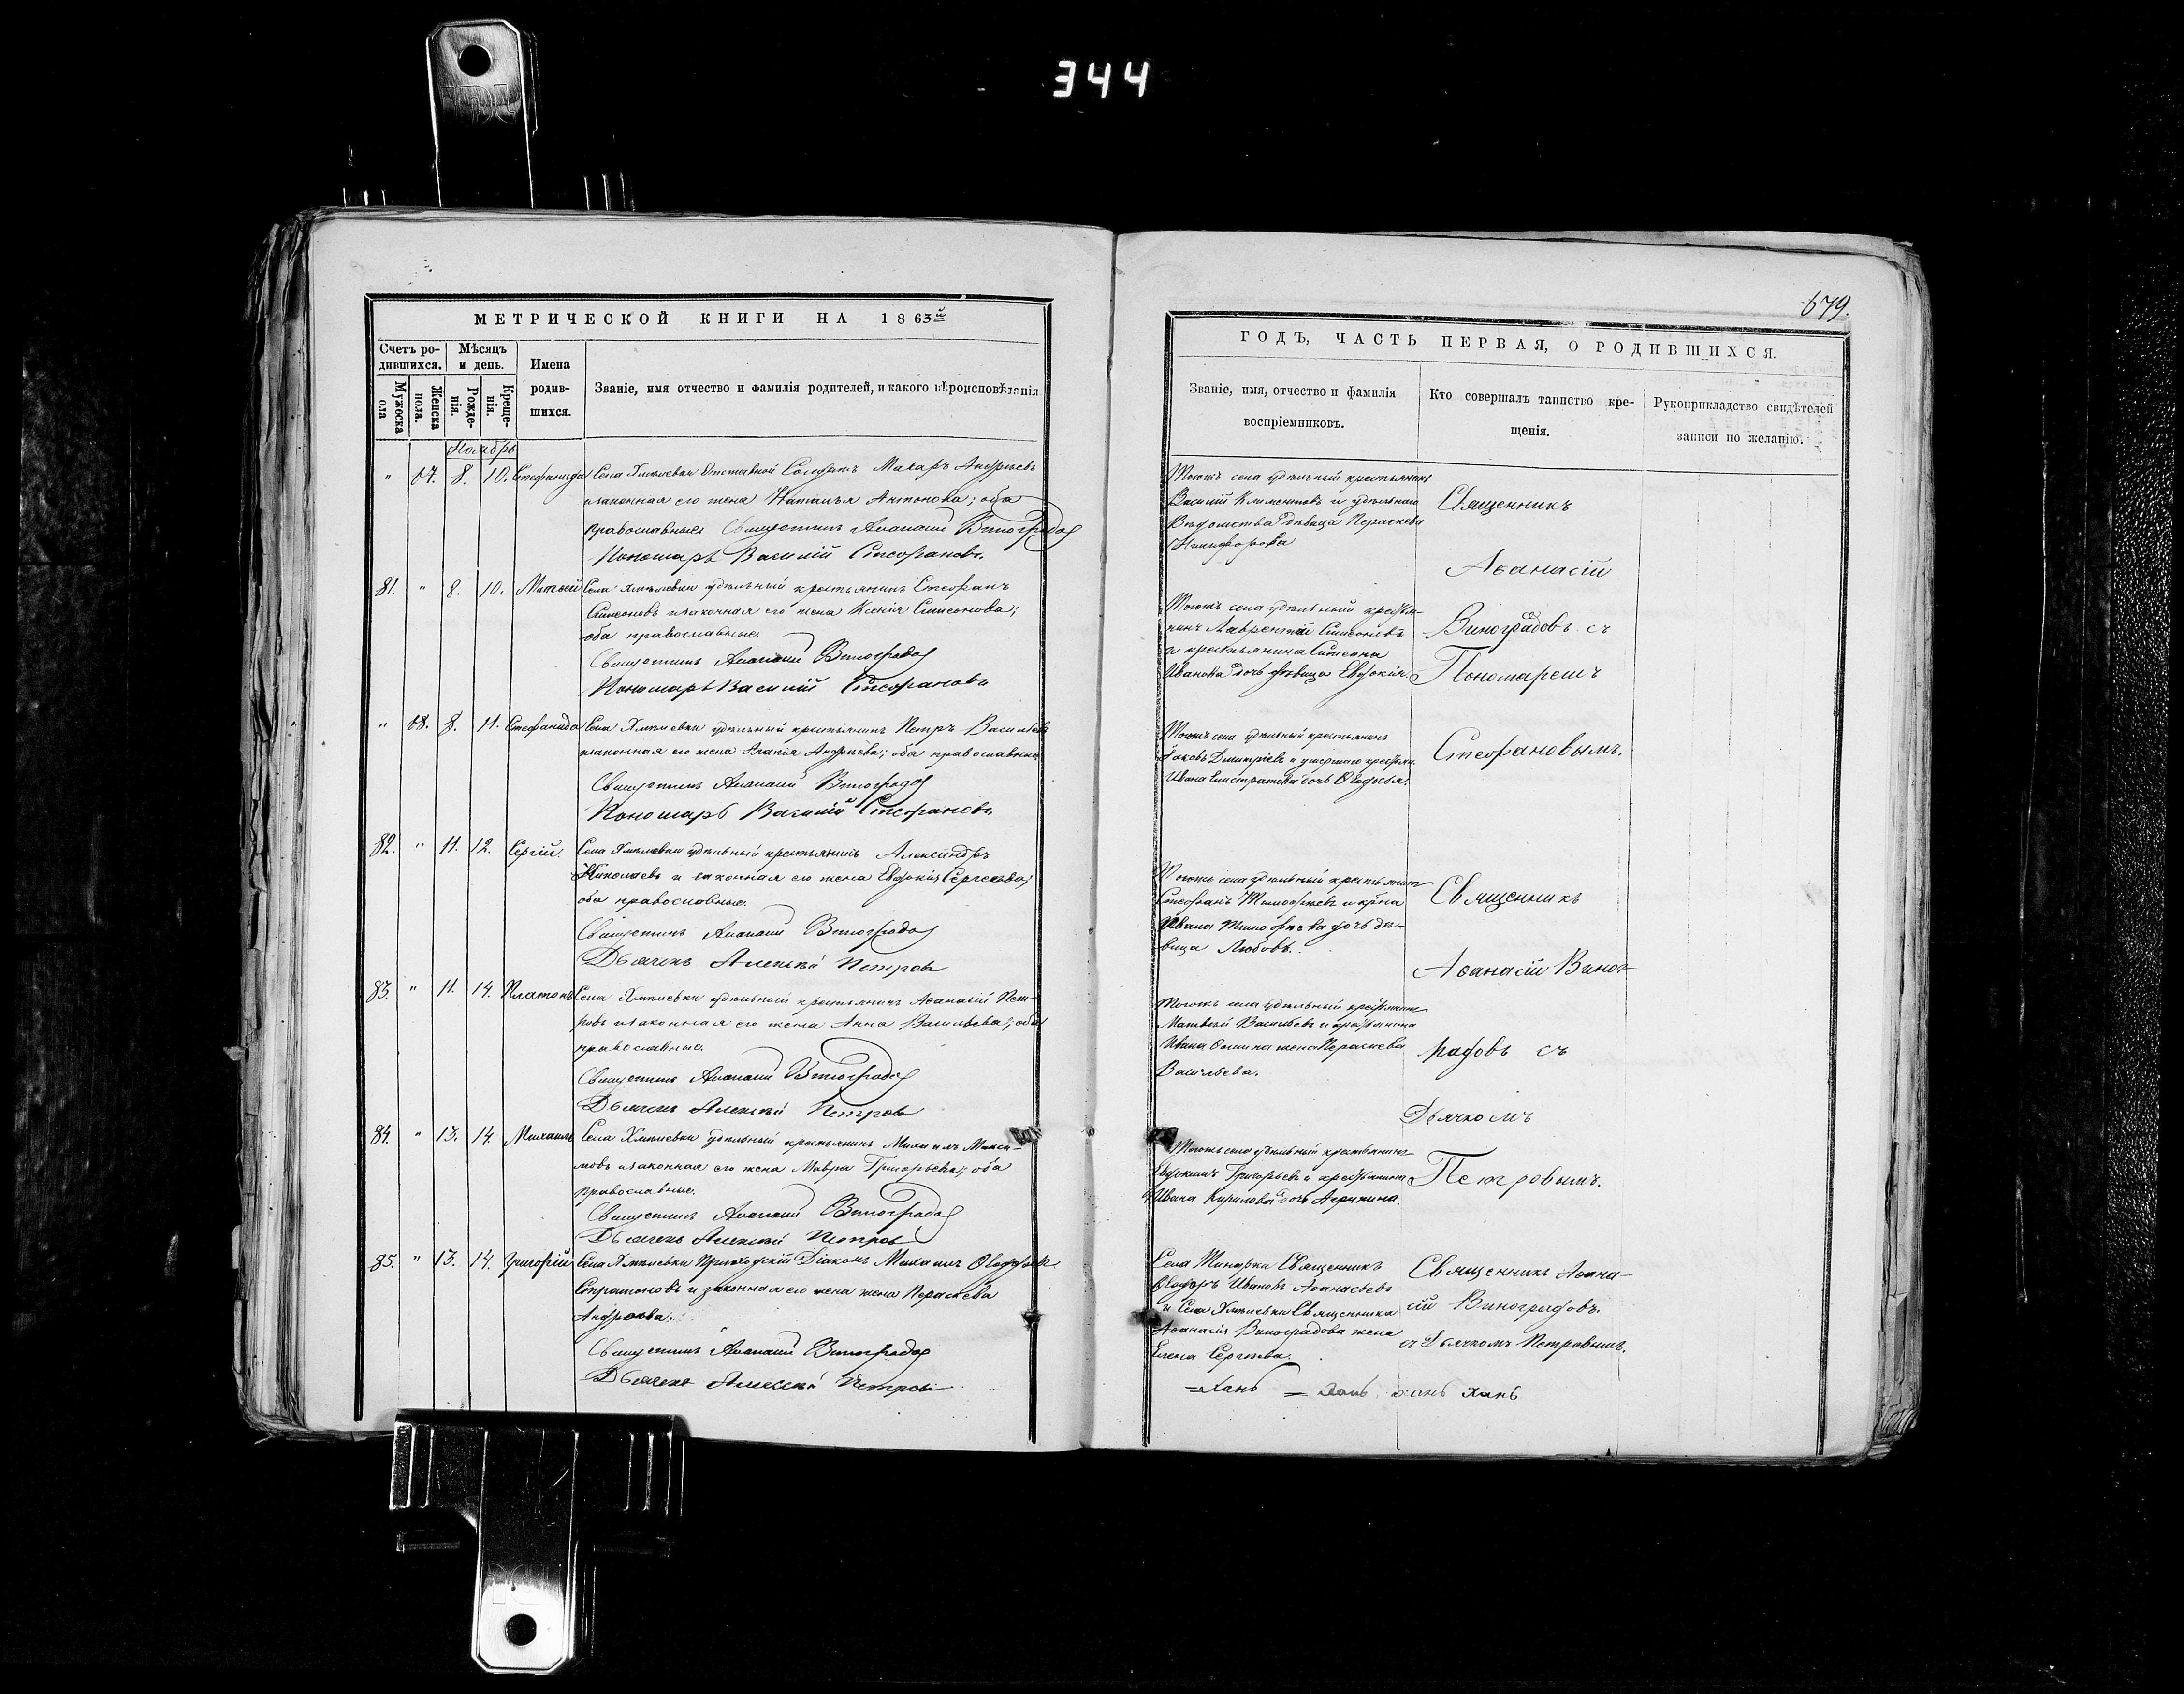 344
679.
МЕТРИЧЕСКОЙ КНИГИ НА 1863й
Счетъ ро-
дившихся.
Мѣсяцъ
и день.
Мужеска
пола
Женска
пола.
Рожде-
нія.
Креще-
нія.
Имена
родив-
шихся.
Званіе, имя отчество и фамилія родителей, и какого вѣроисповѣданія
Ноябрь
" 67. 8. 10. Стефанида Села Хмѣлевки Отставной Солдатъ Макаръ Андреевъ
и законная его жена Наталья Антонова; оба
православные Священникъ Аѳанасій Виноградов
Пономарь Василій Стефановъ.
81. " 8. 10. Матѳей Села Хмѣлевки удѣльный крестьянинъ Стефанъ
Симеоновъ и законная его жена Ксенія Симеонова;
оба православные.
Священникъ Аѳанасій Виноградов
Пономарь Василій Стефановъ
" 68. 8. 11. Стефанида Села Хмѣлевки удѣльный крестьянинъ Петръ Васильевъ
и законная его жена Агапія Андреева; оба православные
Священникъ Аѳанасій Виноградов
Пономарь Василій Стефановъ
82. " 11. 12. Сергій. Села Хмѣлевки удѣльный крестьянинъ Александръ
Николаевъ и законная его жена Евдокія Сергеева;
оба православные.
Священникъ Аѳанасій Виноградов
Дьячекъ Алексѣй Петровъ
83. " 11. 14. Платонъ Села Хмѣлевки удѣльный крестьянинъ Аѳанасій Пет-
ровъ и законная его жена Анна Васильева; оба
православные.
Священникъ Аѳанасій Виноградов
Дьячекъ Алексѣй Петровъ
84. " 13. 14. Михаилъ Села Хмѣлевки удѣльный крестьянинъ Михаилъ Макси-
мовъ и законная его жена Мавра Григорьева; оба
православные.
Священникъ Аѳанасій Виноградов
Дьячекъ Алексѣй Петровъ
85. " 13. 14. Григорій Села Хмѣлевки Приходскій Діаконъ Михаилъ
и законная его жена жена Параскева
Священникъ Аѳанасій Виноградов
Дьячекъ Алексѣй Петровъ
ГОДЪ, ЧАСТЬ ПЕРВАЯ, О РОДИВШИХСЯ.
Званіе, имя, отчество и фамилія
воспріемниковъ.
Кто совершалъ таинство кре-
щенія.
Рукоприкладство свидѣтелей
записи по желанію.
Тогожъ села удѣльный крестьянинъ
Василій Климентовъ и удѣльнаго
Вѣдомства дѣвица Параскева
Никифорова
Тогожъ села удѣльный крестья-
нинъ Лаврентій Симеоновъ
и крестьянина Симеона
Иванова дочь дѣвица Евдокія.
Тогожъ села удѣльный крестьянинъ
Іаковъ Дмитріевъ и умершаго крестьян.
Ивана Елистратова дочь Ѳеодосья.
Тогожъ села удѣльный крестьянинъ
Стефанъ Тимофеевъ и крестьянина
Ивана Тимофеева дочь дѣ-
вица Любовь.
Тогожъ села удѣльный крестьянинъ
Матвей Васильевъ и крестьянина
Ивана Ѳомина жена Параскева
Васильева.
Тогожъ села удѣльный крестьянинъ
Евдокимъ Григорьевъ и крестьянина
Ивана Кирилова дочь Агрипина.
Села Священникъ
Ѳеодоръ Ивановъ Аѳанасьевъ
и Села Хмѣлевки Священника
Аѳанасія Виноградова жена
Елена Сергѣева.
Священникъ
Аѳанасій
Виноградовъ съ
Пономаремъ
Стефановымъ.
Священникъ
Аѳанасій Виног-
радовъ съ
Дьячкомъ
Петровымъ.
Священникъ Аѳана-
сій Виноградовъ.
съ Дьячкомъ Петровымъ.